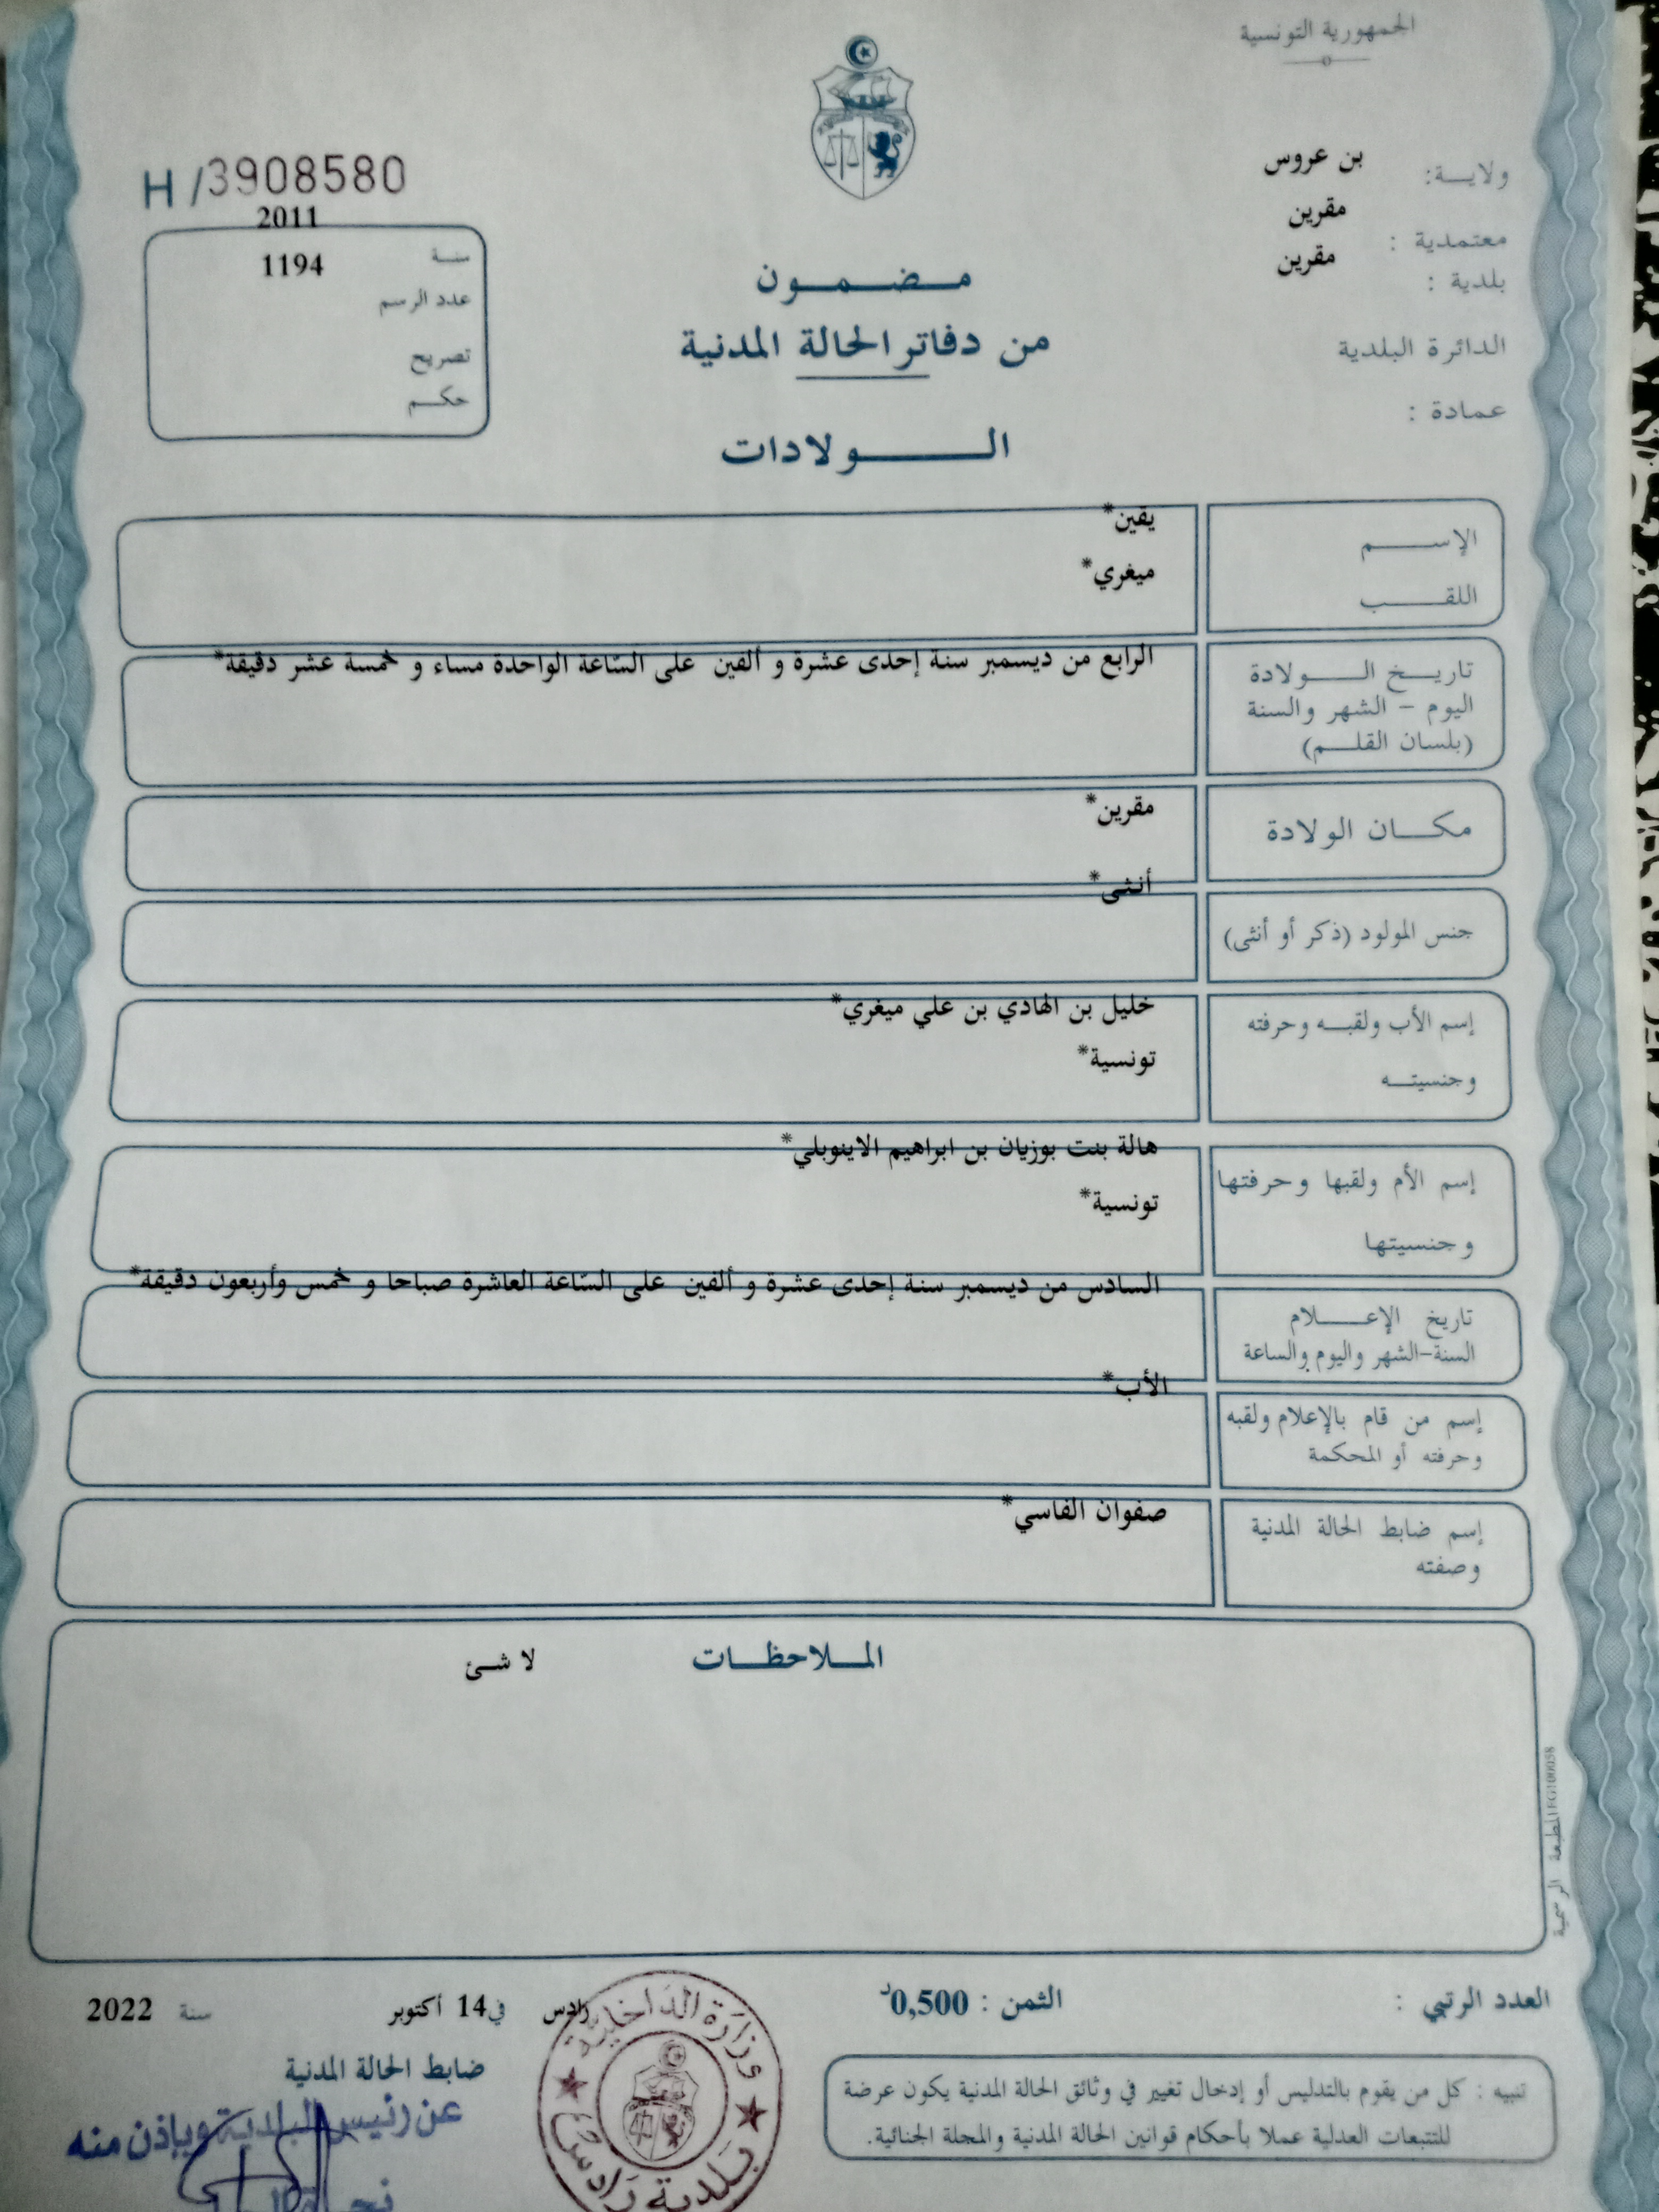 الجمهورية التونسية
ولايـــة: بن عروس
معتمدية : مقرين
بلدية : مقرين
الدائرة البلدية
عمادة :
H/3908580
سنة 2011
عدد الرسم 1194
تصريح
حكم
مضمون
من دفاتر الحالة المدنية
الولادات
الإسم يقين*
اللقب ميغري*
تاريخ الولادة الرابع من ديسمبر سنة إحدى عشرة و ألفين على السّاعة الواحدة مساء و خمسة عشر دقيقة*
اليوم – الشهر والسنة
(بلسان القلم)
مكان الولادة مقرين*
جنس المولود (ذكر أو أنثى) أنثى*
إسم الأب ولقبه وحرفته خليل بن الهادي بن علي ميغري*
وجنسيته تونسية*
إسم الأم ولقبها وحرفتها هالة بنت بوزيان بن ابراهيم الاينوبلي*
وجنسيتها تونسية*
تاريخ الإعلام السادس من ديسمبر سنة إحدى عشرة و ألفين على السّاعة العاشرة صباحا و خمس وأربعون دقيقة*
السنة-الشهر واليوم والساعة
إسم من قام بالإعلام ولقبه الأب*
وحرفته أو المحكمة
إسم ضابط الحالة المدنية صفوان الفاسي*
وصفته
الملاحظات لا شئ
المطبعة الرسمية
العدد الرتبي :
الثمن : 0,500د
رادس في 14 أكتوبر سنة 2022
ضابط الحالة المدنية
عن رئيس البلدية وبإذن منه
وزارة الداخلية
بلدية رادس
تنبيه : كل من يقوم بالتدليس أو إدخال تغيير في وثائق الحالة المدنية يكون عرضة
للتتبعات العدلية عملا بأحكام قوانين الحالة المدنية والمجلة الجنائية.